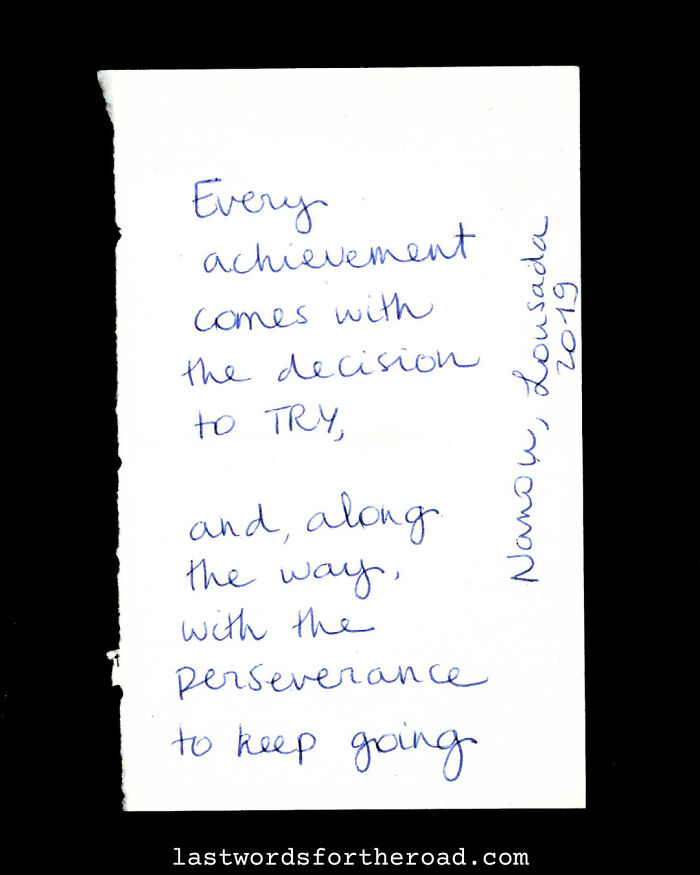 Every
achievement
comes with
the decision
to TRY,
and, along
the way,
with the
perseverance
to keep going
Nanou, Lousada
2019
lastwordsfortheroad.com